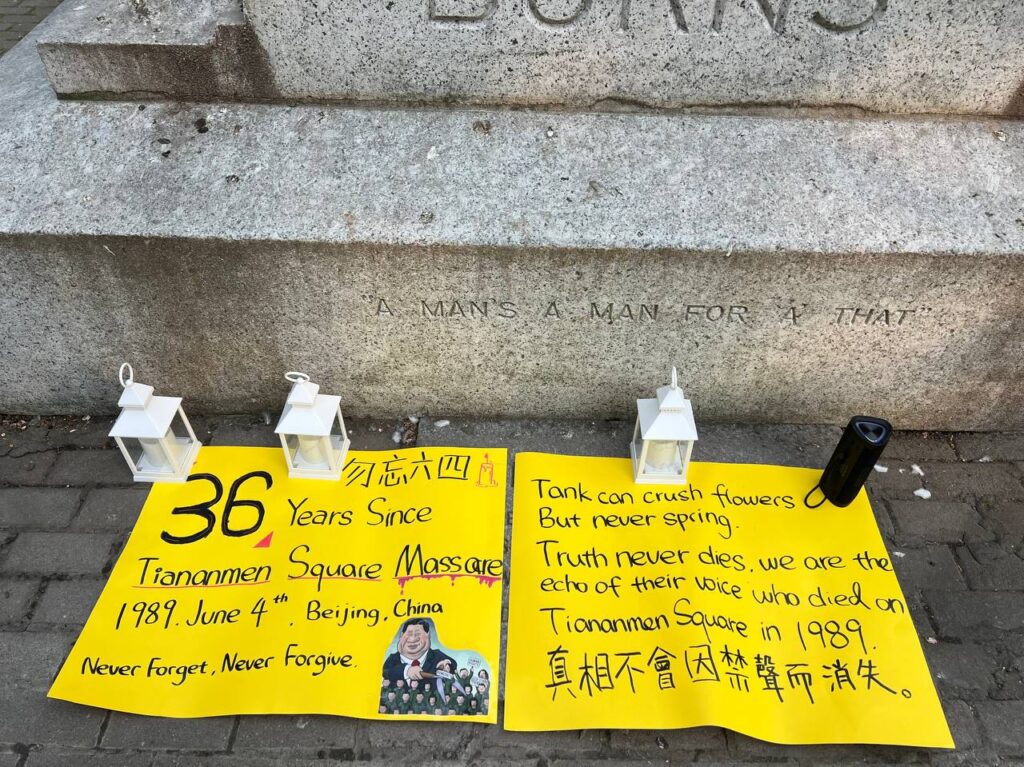 BURNS
"A MAN'S A MAN FOR A' THAT"
勿忘六四
36 Years Since
Tiananmen Square Massacre
1989. June 4th, Beijing, China
Never Forget, Never Forgive.
Tank can crush flowers
But never spring.
Truth never dies, we are the
echo of their voice who died on
Tiananmen Square in 1989.
真相不會因禁聲而消失。